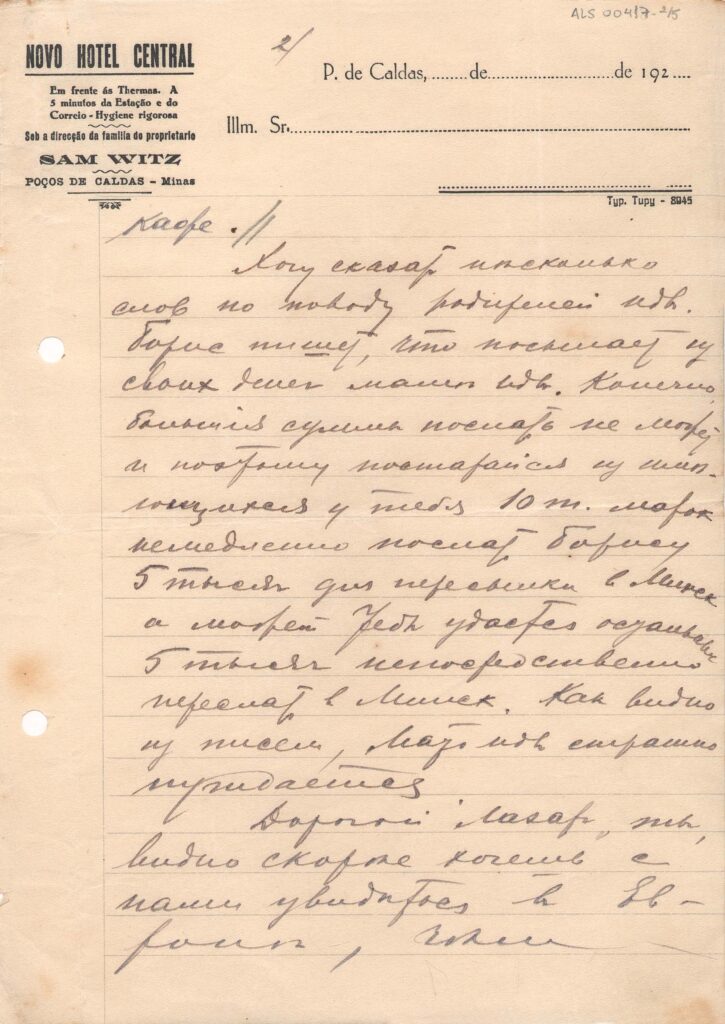 ALS 00417-2/5
2/
NOVO HOTEL CENTRAL
Em frente ás Thermas. A
5 minutos da Estação e do
Correio - Hygiene rigorosa
Sob a direcção da familia do proprietario
SAM WITZ
POÇOS DE CALDAS - Minas
P. de Caldas, ........ de ............................ de 192....
Illm. Sr. ............................................................
Typ. Tupy - 8945
кафе. //
Хочу сказать нѣсколько
слов по поводу родителей Идъ.
Борис пишет, что посылает из
своих денег мамѣ Идъ. Конечно,
большія суммы послать не может
и поэтому постарайся из имѣ-
ющихся у тебя 10 т. марок
немедленно послать Борису
5 тысяч для пересылки в Минск
а может Тебѣ удастся остальныя
5 тысяч непосредственно
переслать в Минск. Как видно
из писем, Мать Идъ страшно
нуждается
Дорогой Лазарь, ты,
видно скорѣе хочешь с
нами увидѣться в Ев-
ропѣ, чѣм